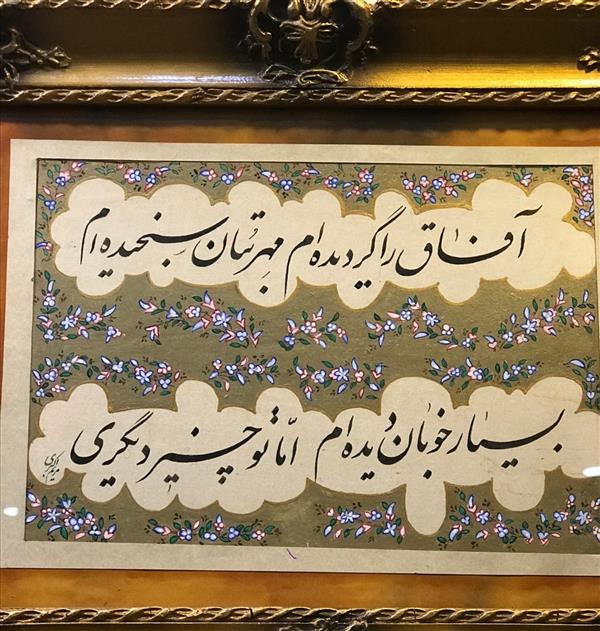 آفاق را گردیده‌ام مهر بتان سنجیده‌ام
بسیار خوبان دیده‌ام امّا تو چیز دیگری